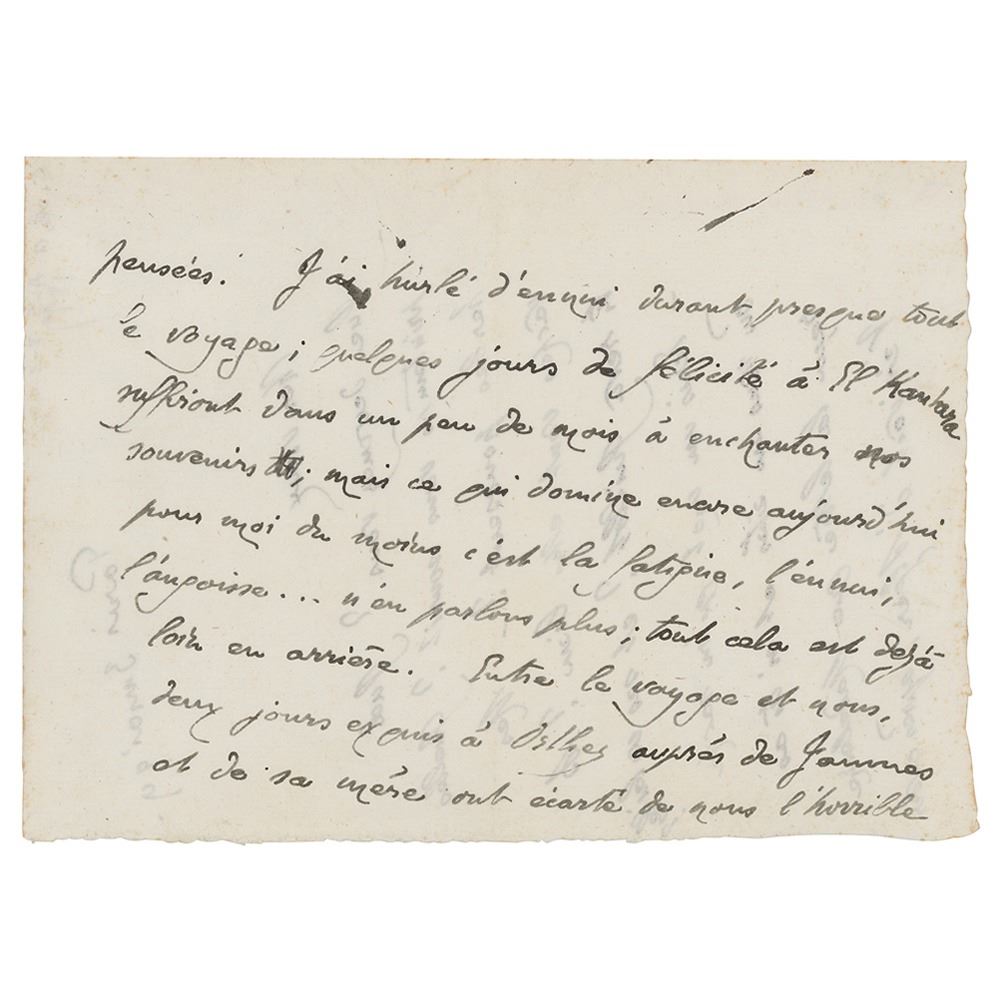 pensées. J'ai hurlé d'ennui durant presque tout
le voyage ; quelques jours de félicité à El Kantara
suffiront dans un peu de mois à enchanter nos
souvenirs ; mais ce qui domine encore aujourd'hui
pour moi du moins c'est la fatigue, l'ennui,
l'angoisse... n'en parlons plus ; tout cela est déjà
loin en arrière. Entre le voyage et nous,
deux jours exquis à Orthez auprès de Jammes
et de sa mère ont écarté de nous l'horrible